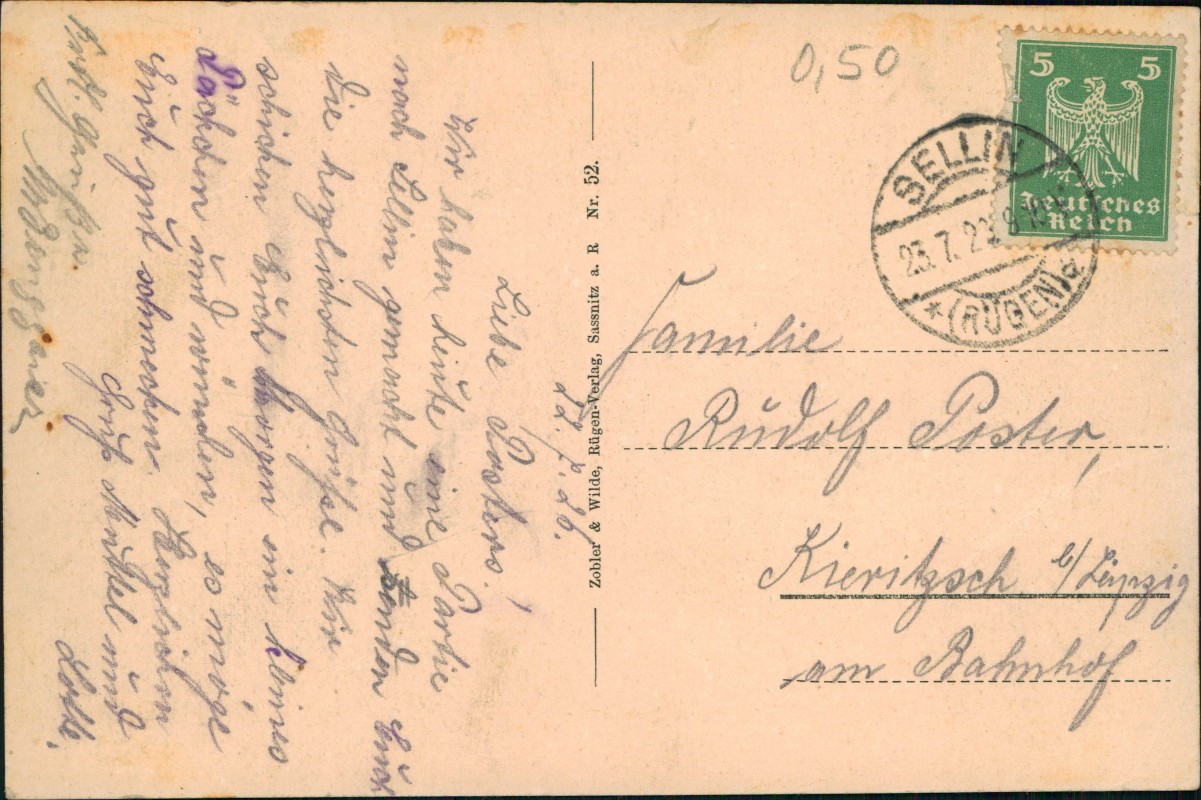 0,50
5 5
Deutsches
Reich
SELLIN
23.7.26
* (RÜGEN) a
Familie
Rudolf Poster,
Kieritzsch b/Leipzig
am Bahnhof
Zobler & Wilde, Rügen-Verlag, Sassnitz a. R Nr. 52.
22.7.26.
Liebe Posters!
Wir haben heute eine Partie
nach Sellin gemacht und senden Euch
die herzlichsten Grüße. Wir
schicken Euch morgen ein kleines
und wünschen, es möge
Euch gut schmecken. Herzlichen
Gruß und
Lotte.